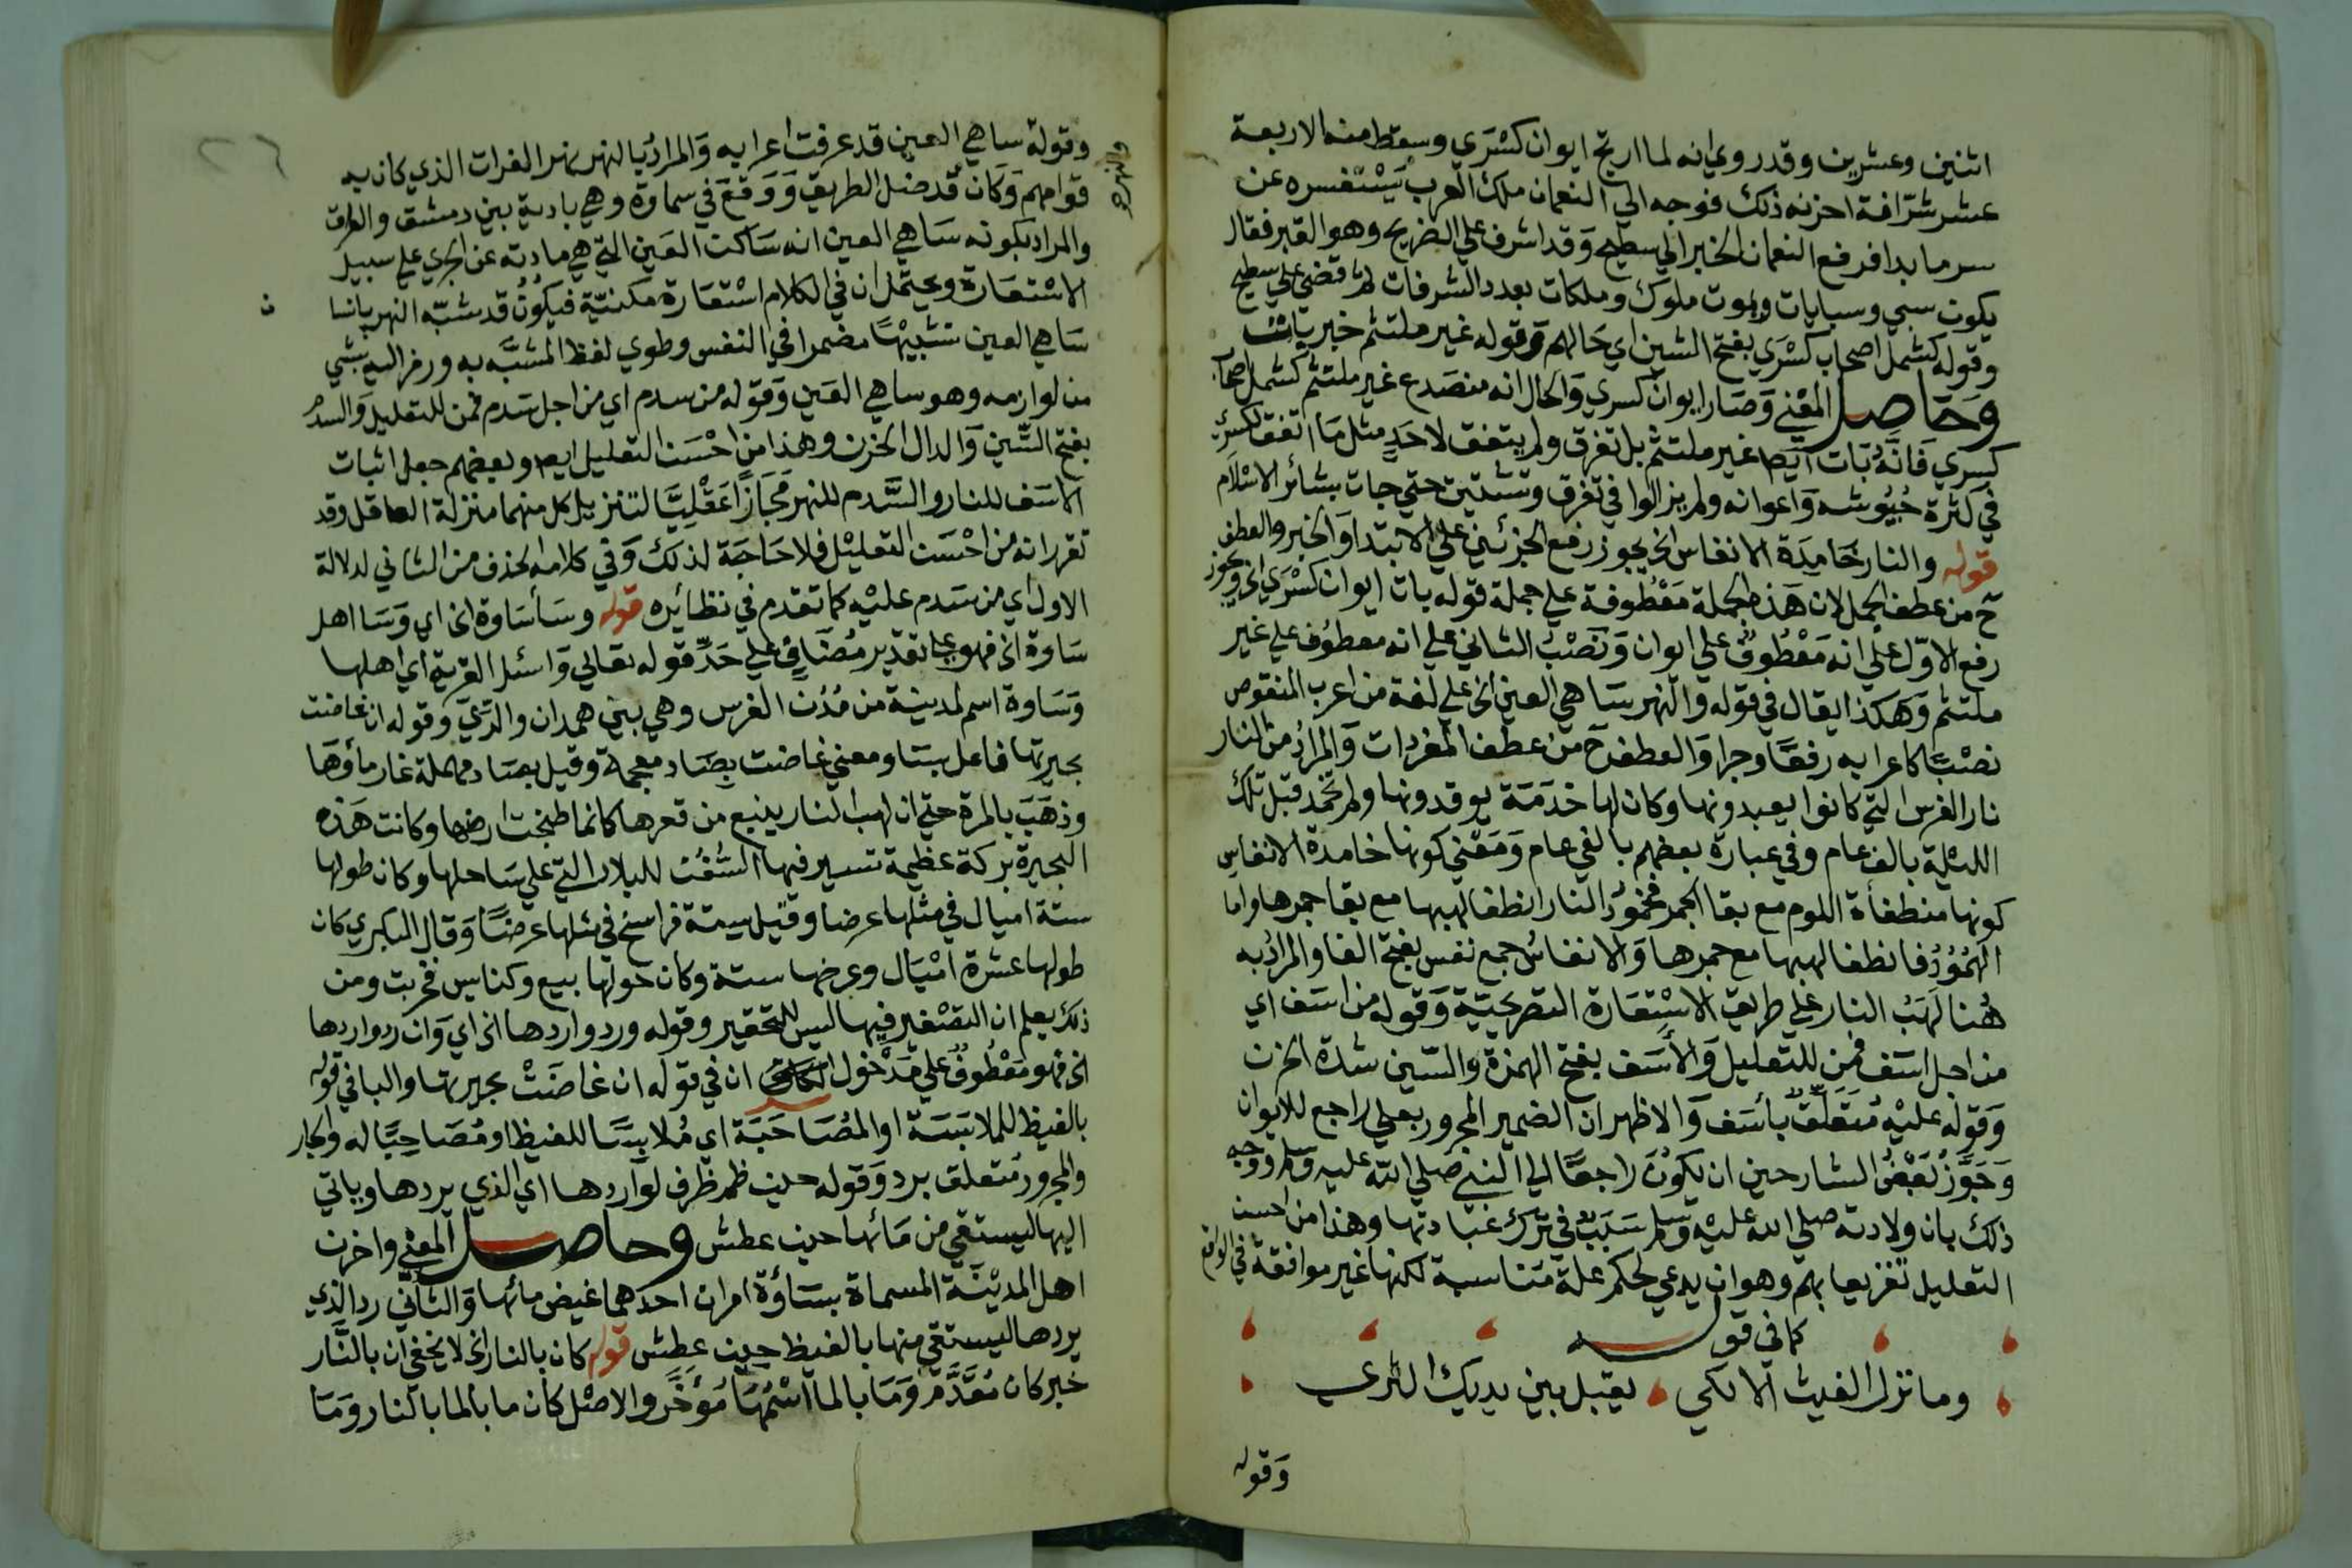 اثنين وعشرين وقد روي انه لما ارتج ايوان كسْرَي وسقط منه الاربعة
عشر شرّافة احزنه ذلك فوجه الي النعمان ملك العرب يَسْتفسره عن
سر ما بدا فرفع النعمان الخبر الي سطيح وَقد اشرف علي الضريح وهو القبر فقال
يكون سبي وسبايات ويموت ملوك وملكات بعدد الشرفات ثم قضي علي سطيح
وقوله كشمل اصحاب كسْرَي بفتح الشين اي حَالهم وَقوله غير ملتئم خبر بات
وَحَاصل المعْني وَصَار ايوان كسري وَالحال انه منصَدع غير ملتئم كشمل اصحاب
كسري فَانَّهُ بَات ايضا غير ملتئم بل تفرق ولم يتفق لاحَدٍ مثل مَا اتفق لكسري
في كثرة جُيُوشه وَاعوانه ولم يزالوا في تفرق وتشتيت حتي جات بشائر الاسْلَام
قوله والنار خَامِدَة الانفاس الخ يجوز رفع الجزئين علي الابتدا وَالخبر والعطف
ح من عطف الجمل لان هَذه الجملة مَعْطُوفة علي جملة قوله بات ايوان كسْرَي الخ ويجوز
رفع الاوّل علي انه مَعْطُوفٌ علي ايوان وَنَصْبُ الثاني علي انه معطوُف علي غير
ملتئم وَهَكَذا يقال في قوله وَالنهر سَاهي العين الخ علي لغة من اعرب المنقوص
نصْبًا كاعرابه رفعًا وجرا وَالعطف ح من عطف المفردات وَالمرادُ من النار
نار الفرس التي كانوا يعبدونها وكان لها خدَمَة يوقدونها ولم تخمد قبل تلك
الليْلة بالف عام وفي عبارة بعضهم بالفي عام وَمَعْني كونها خامدة الانفاس
كونها منطفأة اللوم مع بقا الجمر فخمُودُ النار انطفا لهبها مع بقا جمرها واما
الهُمُوُدُ فانطفا لهبها مع جمرها وَالانفاسُ جمع نفس بفتح الفا والمرادُ به
هُنا لَهَبُ النار علي طريق الاسْتِعَارة التصريحيّة وَقوله من اسَف اي
من اجل اسَف فمن للتعليل وَالأَسَف بفتح الهمزة والسّين شدة الحزن
وَقوله عليْه مُتَعَلقٌ بأسَف وَالاظهر ان الضمير المجرور بعلي راجع للايوان
وَجَوَّزَ بَعْضُ الشارحين ان يكوُنَ راجعًا الي النبي صلي الله عليه وَسلم ووجه
ذلك بان ولادته صلي الله عليْه وَسلم سَبَبٌ في تَرْك عبَادتها وهذا من احسن
التعليل تغزيعا بهم وهو ان يدعي لحكم علة مناسبة لكنها غير موافقة في الواقع
كما في قول
وما نزل الغيث الا لكي يقبل بين يديك الثري
وَقوله
٢٦
وقولهُ ساهي العين قد عرفت اعرابه وَالمرادُ بالنهر نهر الفرات الذي كان به
قوامهم وَكَان قد ضل الطريق وَوَقعَ في سماوَة وهي بادية بين دمشق والعراق
والمراد بكونه سَاهي العين انه سَاكن العَين التي هي مادته عن الجري علي سبيل
الاسْتعَارة ويحتمل ان في الكلام اسْتعَارة مكنيّة فيكوُنُ قد شبّه النهر بانسا ن
سَاهي العين تشبيْهًا مضمرا في النفس وطوي لفظ المشبَّه به ورمز اليه بشي
من لوازمه وهو ساهي العَين وَقوله من سدم اي من اجل سَدم فمن للتعليل وَالسدم
بفتح السّين وَالدال الحزن وهذا من احْسَن التعليل ايضا وبعضهم جعل اثبات
الاسَف للنار والسَّدم للنهر مَجَازًا عَقْلِيَّا لتنزيل كل منهما منزلة العاقل وقد
تقرر انه من احْسَن التعليْل فلا حَاجَة لذلك وَفي كلامه الحذف من الثاني لدلالة
الاول اي من سَدم عليْه كما تقدم في نظائره قوله وسَأسَاوة الخ اي وَسَا اهل
سَاوة الخ فهو علي تقدير مُضَافٍ علي حَدِّ قوله تعالي وَاسئل القرية اي اهلها
وَسَاوة اسم لمدينة من مُدُن الفرس وهي بين همدان والرّيّ وقوله ان غاضت
بحيرتها فاعل بسَا ومعني غاضت بضَاد معجمة وقيل بصَاد مهملة غار ماؤها
وذهَبَ بالمرة حتي ان لهب النار ينبع من قعرها كانما طبخت ارضها وكانت هَذه
البحيرة بركة عظيمة تسير فيها السُّفُن للبلاد التي علي سَاحلها وكان طولها
ستة اميال في مثلها عرضا وقيل ستة فراسخ في مثلها عرضًا وَقال البكري كان
طولها عشرة امْيَال وعرضها ستة وكان حَولها بيع وكنايس فخربت ومن
ذلك يعلم ان التصْغير فيها ليس للتحقير وقوله ورد واردها الخ اي وَان رد واردها
الخ فهو مَعْطُوفٌ علي مَدْخول ان في قوله ان غاضَتْ بحيرتها والبا في قوله
بالغيظ للملابَسَة او المُصَاحَبَة اي مُلابسًا للغيظ او مُصَاحِبًا له والجار
والمجرور مُتعلق برد وَقوله حين ظمي ظرف لواردها اي الذي يردها وياتي
اليها ليستقي من مَائها حين عطش وحاصل المعني واحزن
اهل المديْنة المسماة بسَاوَة امران احدهما غيض مائها وَالثاني رد الذي
يردها ليستقي منها بالغيظ حين عطش قوله كان بالنار الخ لا يخفي ان بالنَّار
خبر كان مُقَدَّم وَمَا بالما اسْمُهَا مُؤَخَّر والاصْل كان ما بالما بالنار وَمَا